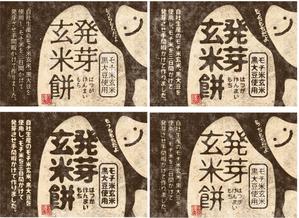 モチ米玄米
黒大豆使用
発芽
玄米餅
はつが
げんまい
もち
自社生産のモチ米玄米、黒大豆を
使用し、モチ米を三日間かけて
発芽させ手間暇かけて作りました。
モチ米玄米
黒大豆使用
発芽
玄米餅
はつが
げんまい
もち
自社生産のモチ米玄米、黒大豆を
使用し、モチ米を三日間かけて
発芽させ手間暇かけて作りました。
モチ米玄米
黒大豆使用
発芽
玄米餅
はつが
げんまい
もち
自社生産のモチ米玄米、黒大豆を
使用し、モチ米を三日間かけて
発芽させ手間暇かけて作りました。
モチ米玄米
黒大豆使用
発芽
玄米餅
はつが
げんまい
もち
自社生産のモチ米玄米、黒大豆を
使用し、モチ米を三日間かけて
発芽させ手間暇かけて作りました。